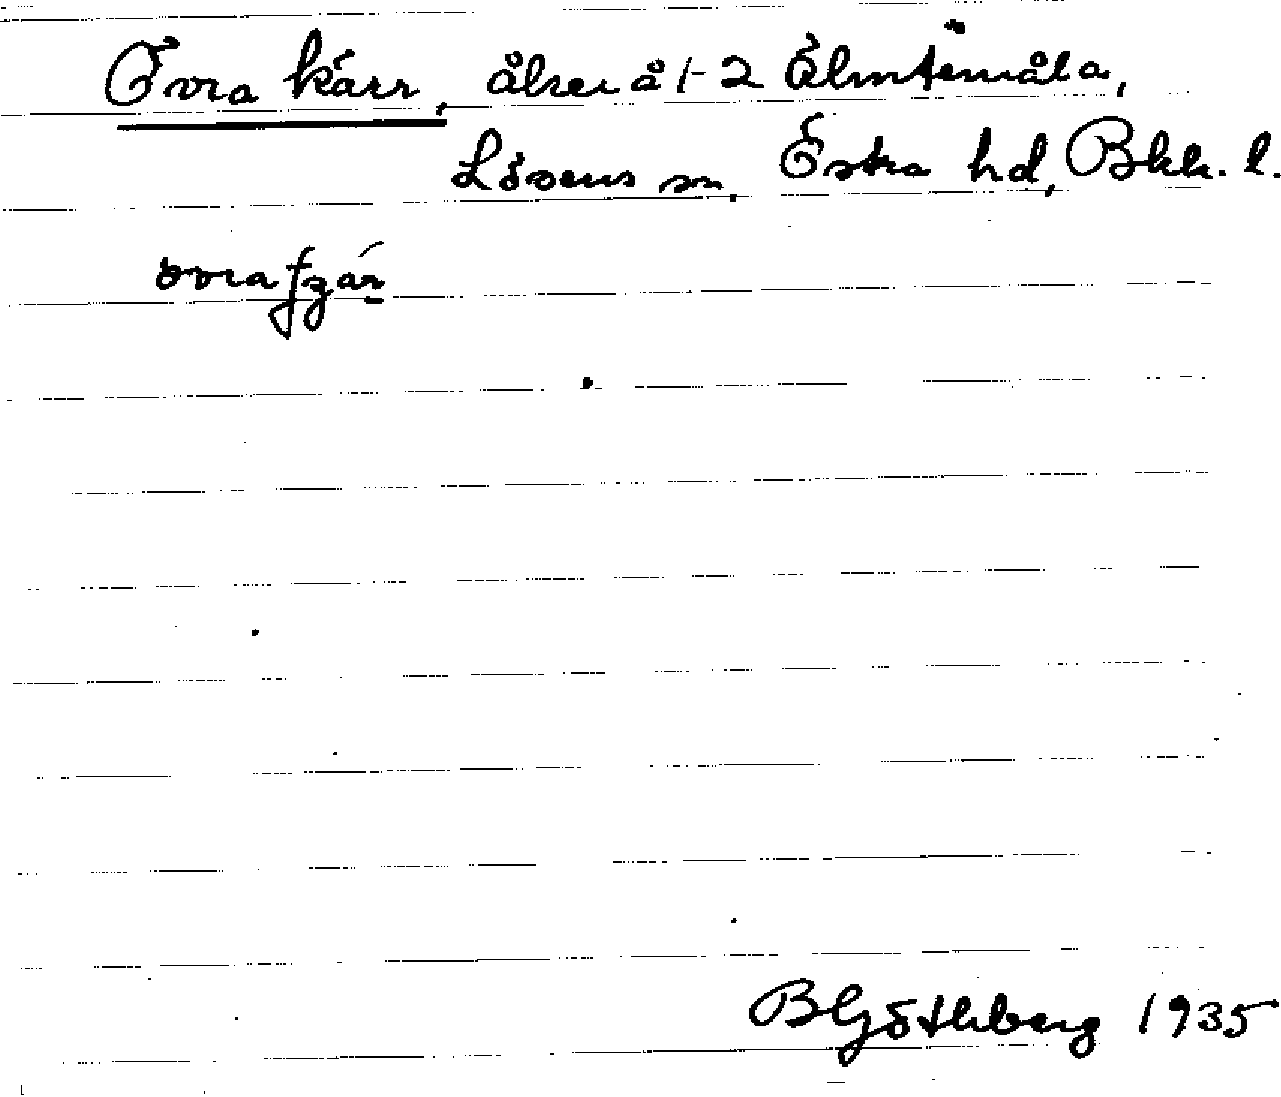 Övra kärr, åker å 1-2 Älmtemåla,
Lösens sn, Östra hd, Bkk. l.
BGöthberg 1935